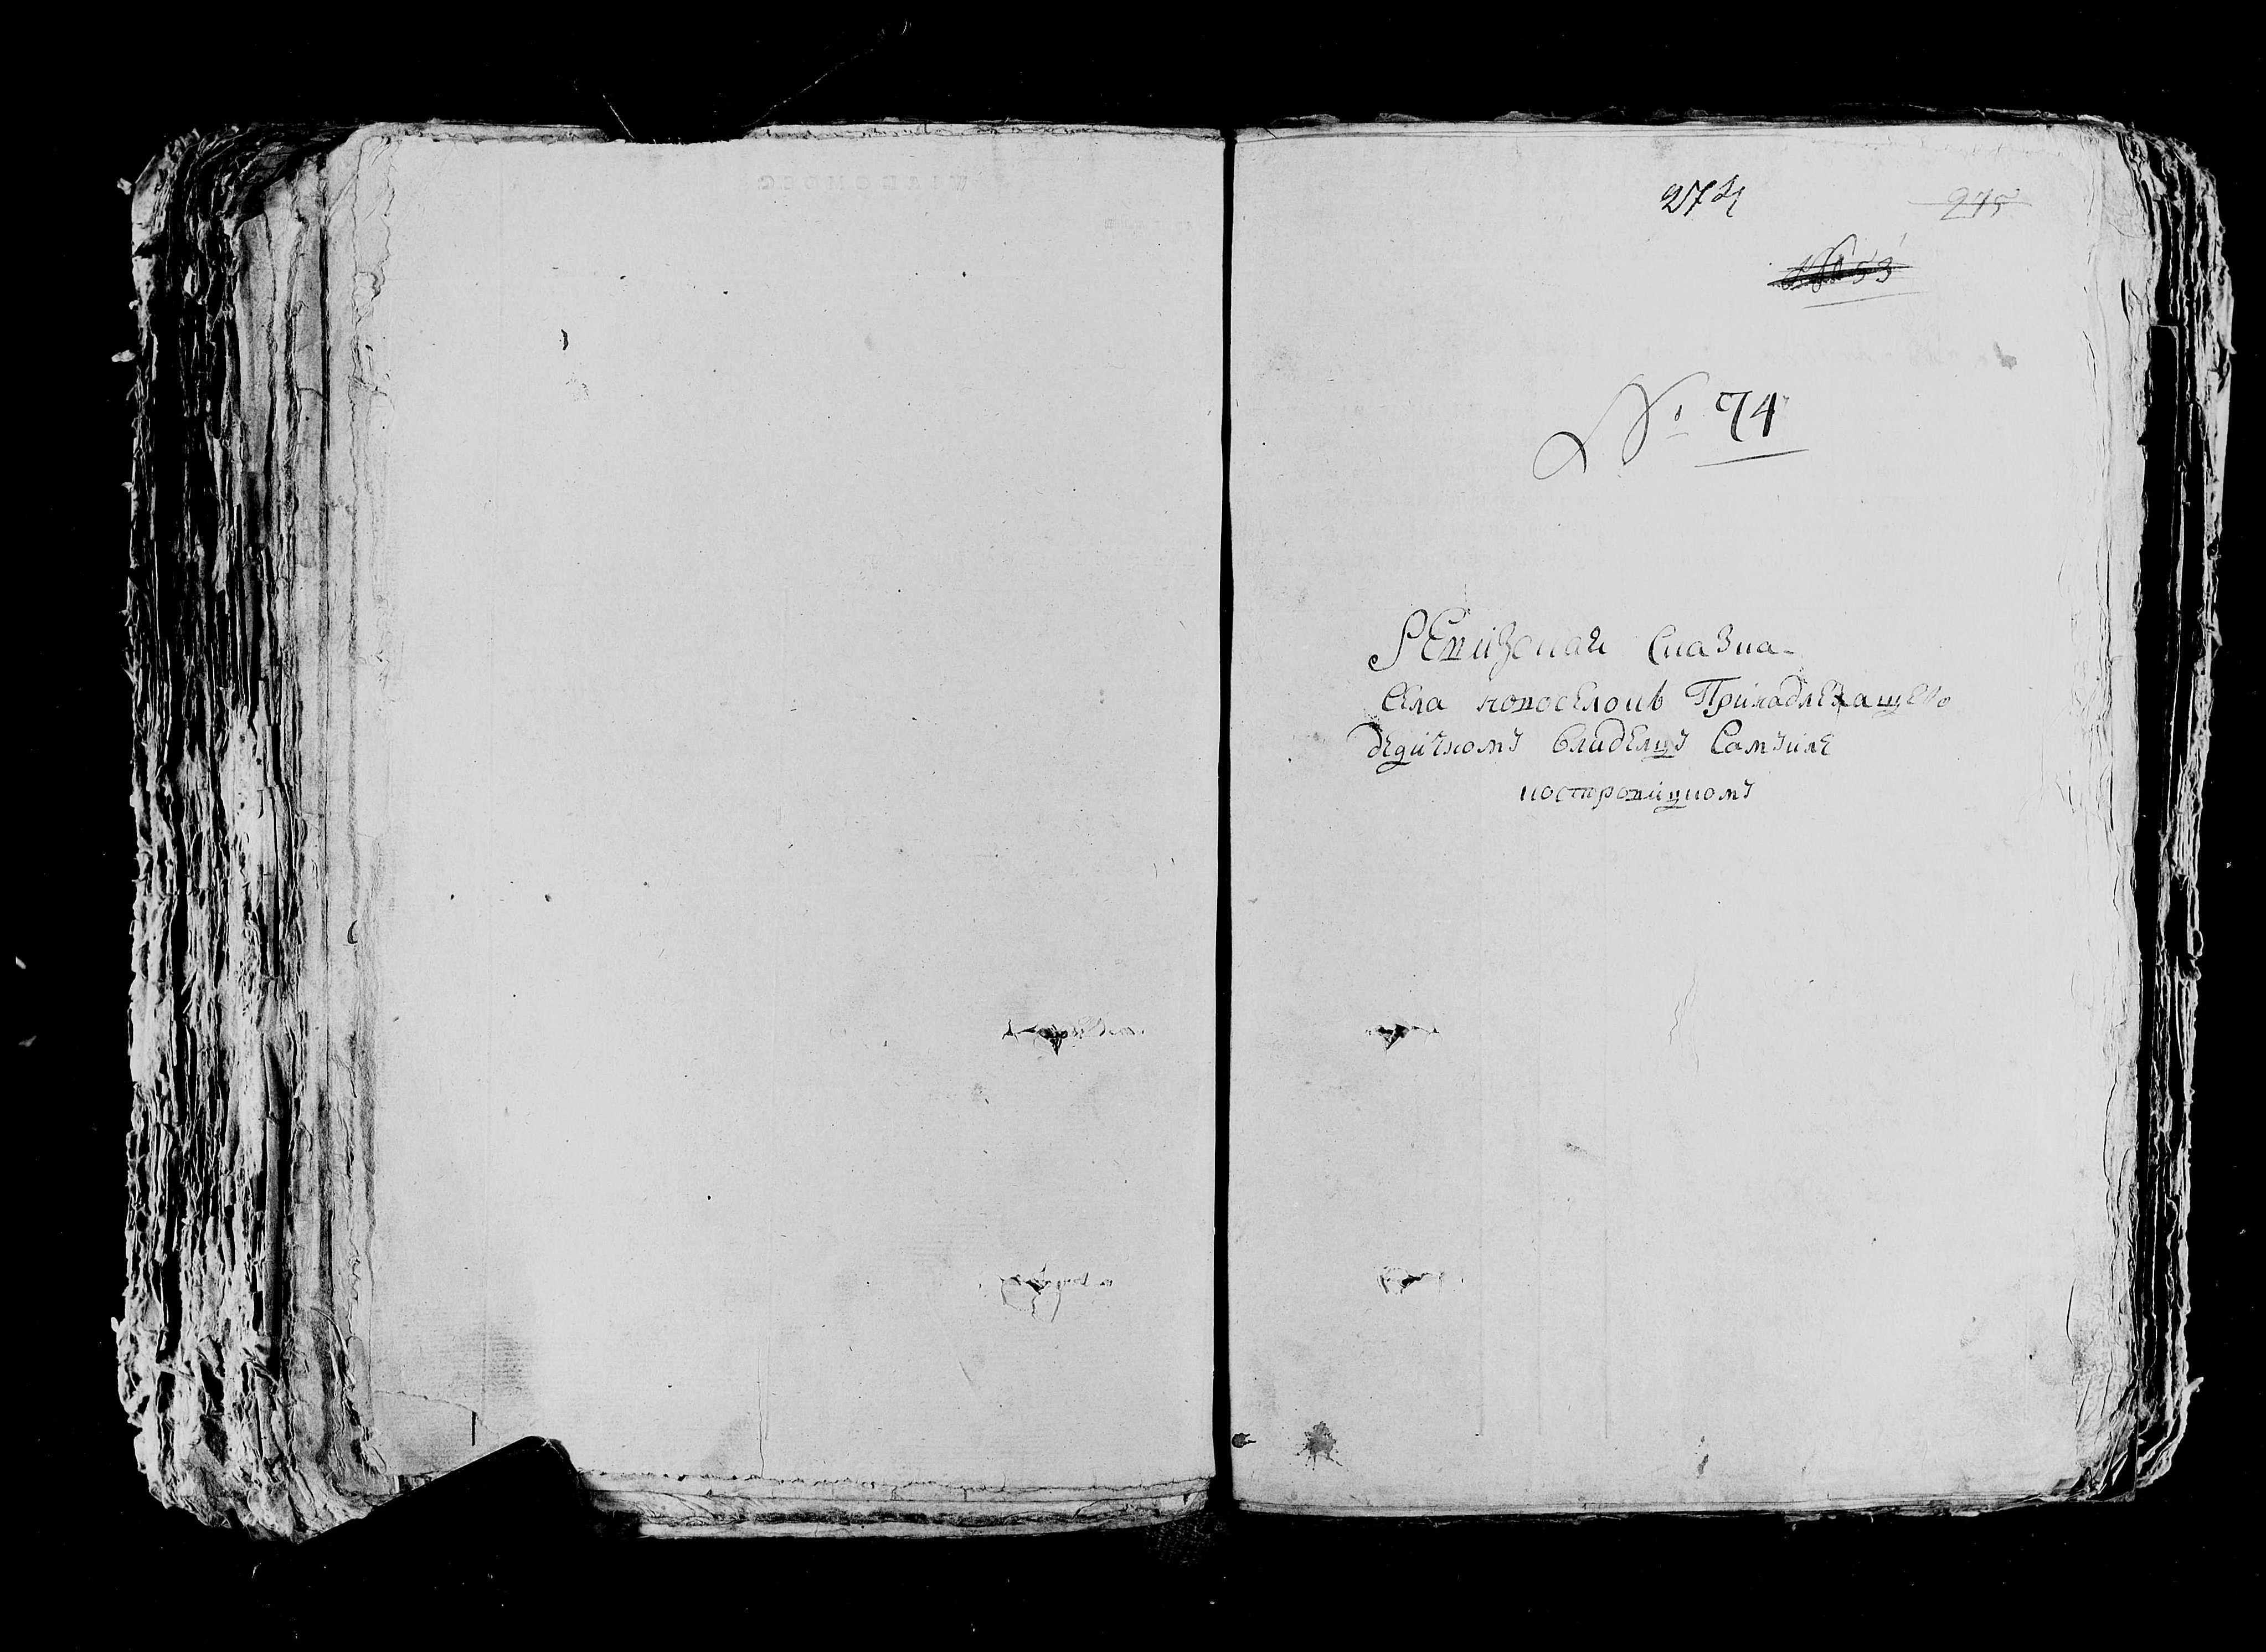 274 275
№ 74
Ревизская Сказка
Села новоселокъ Принадлежащего
дедичному владелцу Самуиле
костровицкому